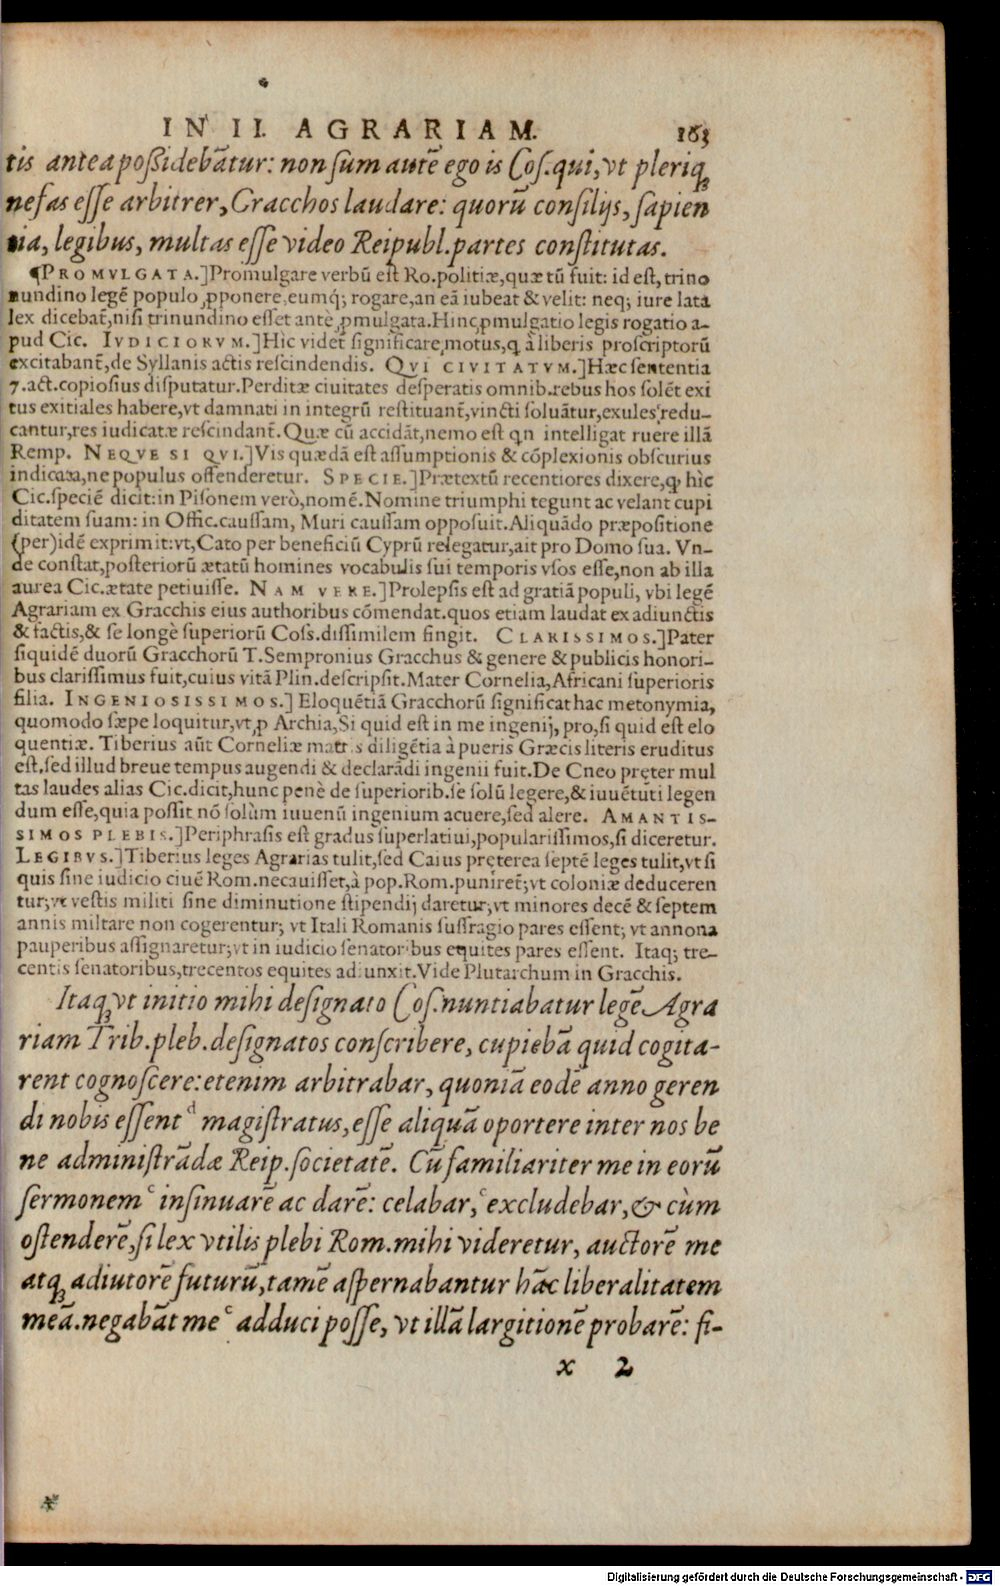 IN II. AGRARIAM. 163
tis antea poßidebãtur: non sum autẽ ego is Cos. qui, vt pleriq́;
nefas esse arbitrer, Gracchos laudare: quorũ consilijs, sapien
tia, legibus, multas esse video Reipubl. partes constitutas.
¶PROMVLGATA.] Promulgare verbũ est Ro. politiæ, quæ tũ fuit: id est, trino
nundino legẽ populo ꝓponere, eumq́; rogare, an eã iubeat & velit: neq; iure lata
lex dicebat̃, nisi trinundino esset antè ꝓmulgata. Hinc ꝓmulgatio legis rogatio a-
pud Cic. IVDICIORVM.] Hîc videt̃ significare motus, ꝗ à liberis proscriptorũ
excitabant̃, de Syllanis actis rescindendis. QVI CIVITATVM.] Hæc sententia
7. act. copiosius disputatur. Perditæ ciuitates desperatis omnib. rebus hos solẽt exi
tus exitiales habere, vt damnati in integrũ restituant̃, vincti soluãtur, exules redu-
cantur, res iudicatæ rescindant̃. Quæ cũ accidãt, nemo est qn intelligat ruere illã
Remp. NEQVE SI QVI.] Vis quædã est assumptionis & cõplexionis obscurius
indicata, ne populus offenderetur. SPECIE.] Prætextũ recentiores dixere, ꝙ hîc
Cic. speciẽ dicit: in Pisonem verò, nomẽ. Nomine triumphi tegunt ac velant cupi
ditatem suam: in Offic. caussam, Muri caussam opposuit. Aliquãdo præpositione
(per) idẽ exprimit: vt, Cato per beneficiũ Cyprũ relegatur, ait pro Domo sua. Vn-
de constat, posteriorũ ætatũ homines vocabulis sui temporis vsos esse, non ab illa
aurea Cic. ætate petiuisse. NAM VERE.] Prolepsis est ad gratiã populi, vbi legẽ
Agrariam ex Gracchis eius authoribus cõmendat. quos etiam laudat ex adiunctis
& factis, & se longè superiorũ Coss. dissimilem fingit. CLARISSIMOS.] Pater
siquidẽ duorũ Gracchorũ T. Sempronius Gracchus & genere & publicis honori-
bus clarissimus fuit, cuius vitã Plin. descripsit. Mater Cornelia, Africani superioris
filia. INGENIOSISSIMOS.] Eloquẽtiã Gracchorũ significat hac metonymia,
quomodo sæpe loquitur, vt, ꝓ Archia, Si quid est in me ingenij, pro, si quid est elo
quentiæ. Tiberius aũt Corneliæ matris diligẽtia à pueris Græcis literis eruditus
est, sed illud breue tempus augendi & declarãdi ingenii fuit. De Cneo pręter mul
tas laudes alias Cic. dicit, hunc penè de superiorib. se solũ legere, & iuuẽtuti legen
dum esse, quia possit nõ solùm iuuenũ ingenium acuere, sed alere. AMANTIS-
SIMOS PLEBIS.] Periphrasis est gradus superlatiui, popularissimos, si diceretur.
LEGIBVS.] Tiberius leges Agrarias tulit, sed Caius pręterea septẽ leges tulit, vt si
quis sine iudicio ciuẽ Rom. necauisset, à pop. Rom. puniret̃; vt coloniæ deduceren
tur; vt vestis militi sine diminutione stipendij daretur; vt minores decẽ & septem
annis miltare non cogerentur; vt Itali Romanis suffragio pares essent; vt annona
pauperibus assignaretur; vt in iudicio senatoribus equites pares essent. Itaq; tre-
centis senatoribus, trecentos equites adiunxit. Vide Plutarchum in Gracchis.
Itaq́; vt initio mihi designato Cos. nuntiabatur legẽ Agra
riam Trib. pleb. designatos conscribere, cupiebã quid cogita-
rent cognoscere: etenim arbitrabar, quoniã eodẽ anno geren
di nobis essent d magistratus, esse aliquã oportere inter nos be
ne administrãdæ Reip. societatẽ. Cũ familiariter me in eorũ
sermonem c insinuarẽ ac darẽ: celabar, c excludebar, & cùm
ostenderẽ, si lex vtilis plebi Rom. mihi videretur, auctorẽ me
atq́; adiutorẽ futurũ, tamẽ aspernabantur hãc liberalitatem
meã. negabãt me c adduci posse, vt illã largitionẽ probarẽ: si-
x 2
Digitalisierung gefördert durch die Deutsche Forschungsgemeinschaft - DFG